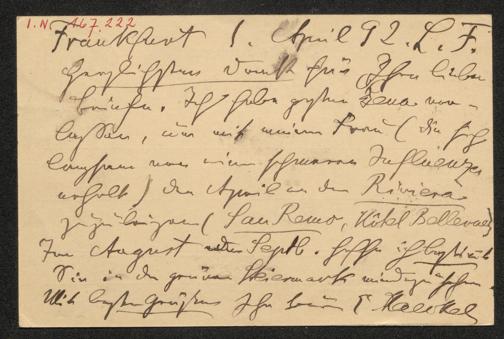 I.N. 167.222
Frankfurt 1. April 92. L. F.
Herzlichsten Dank für Ihren lieben
Brief. Ich habe gestern Jena ver-
lassen, um mit meiner Frau (die sich
langsam von einer schweren Influenza
erholt) den April an der Riviera
zuzubringen (San Remo, Hôtel Bellevue)
Im August oder Septb. hoffe ich
Sie in der grünen Steiermark wiederzusehen.
Mit besten Grüßen Ihr E Haeckel